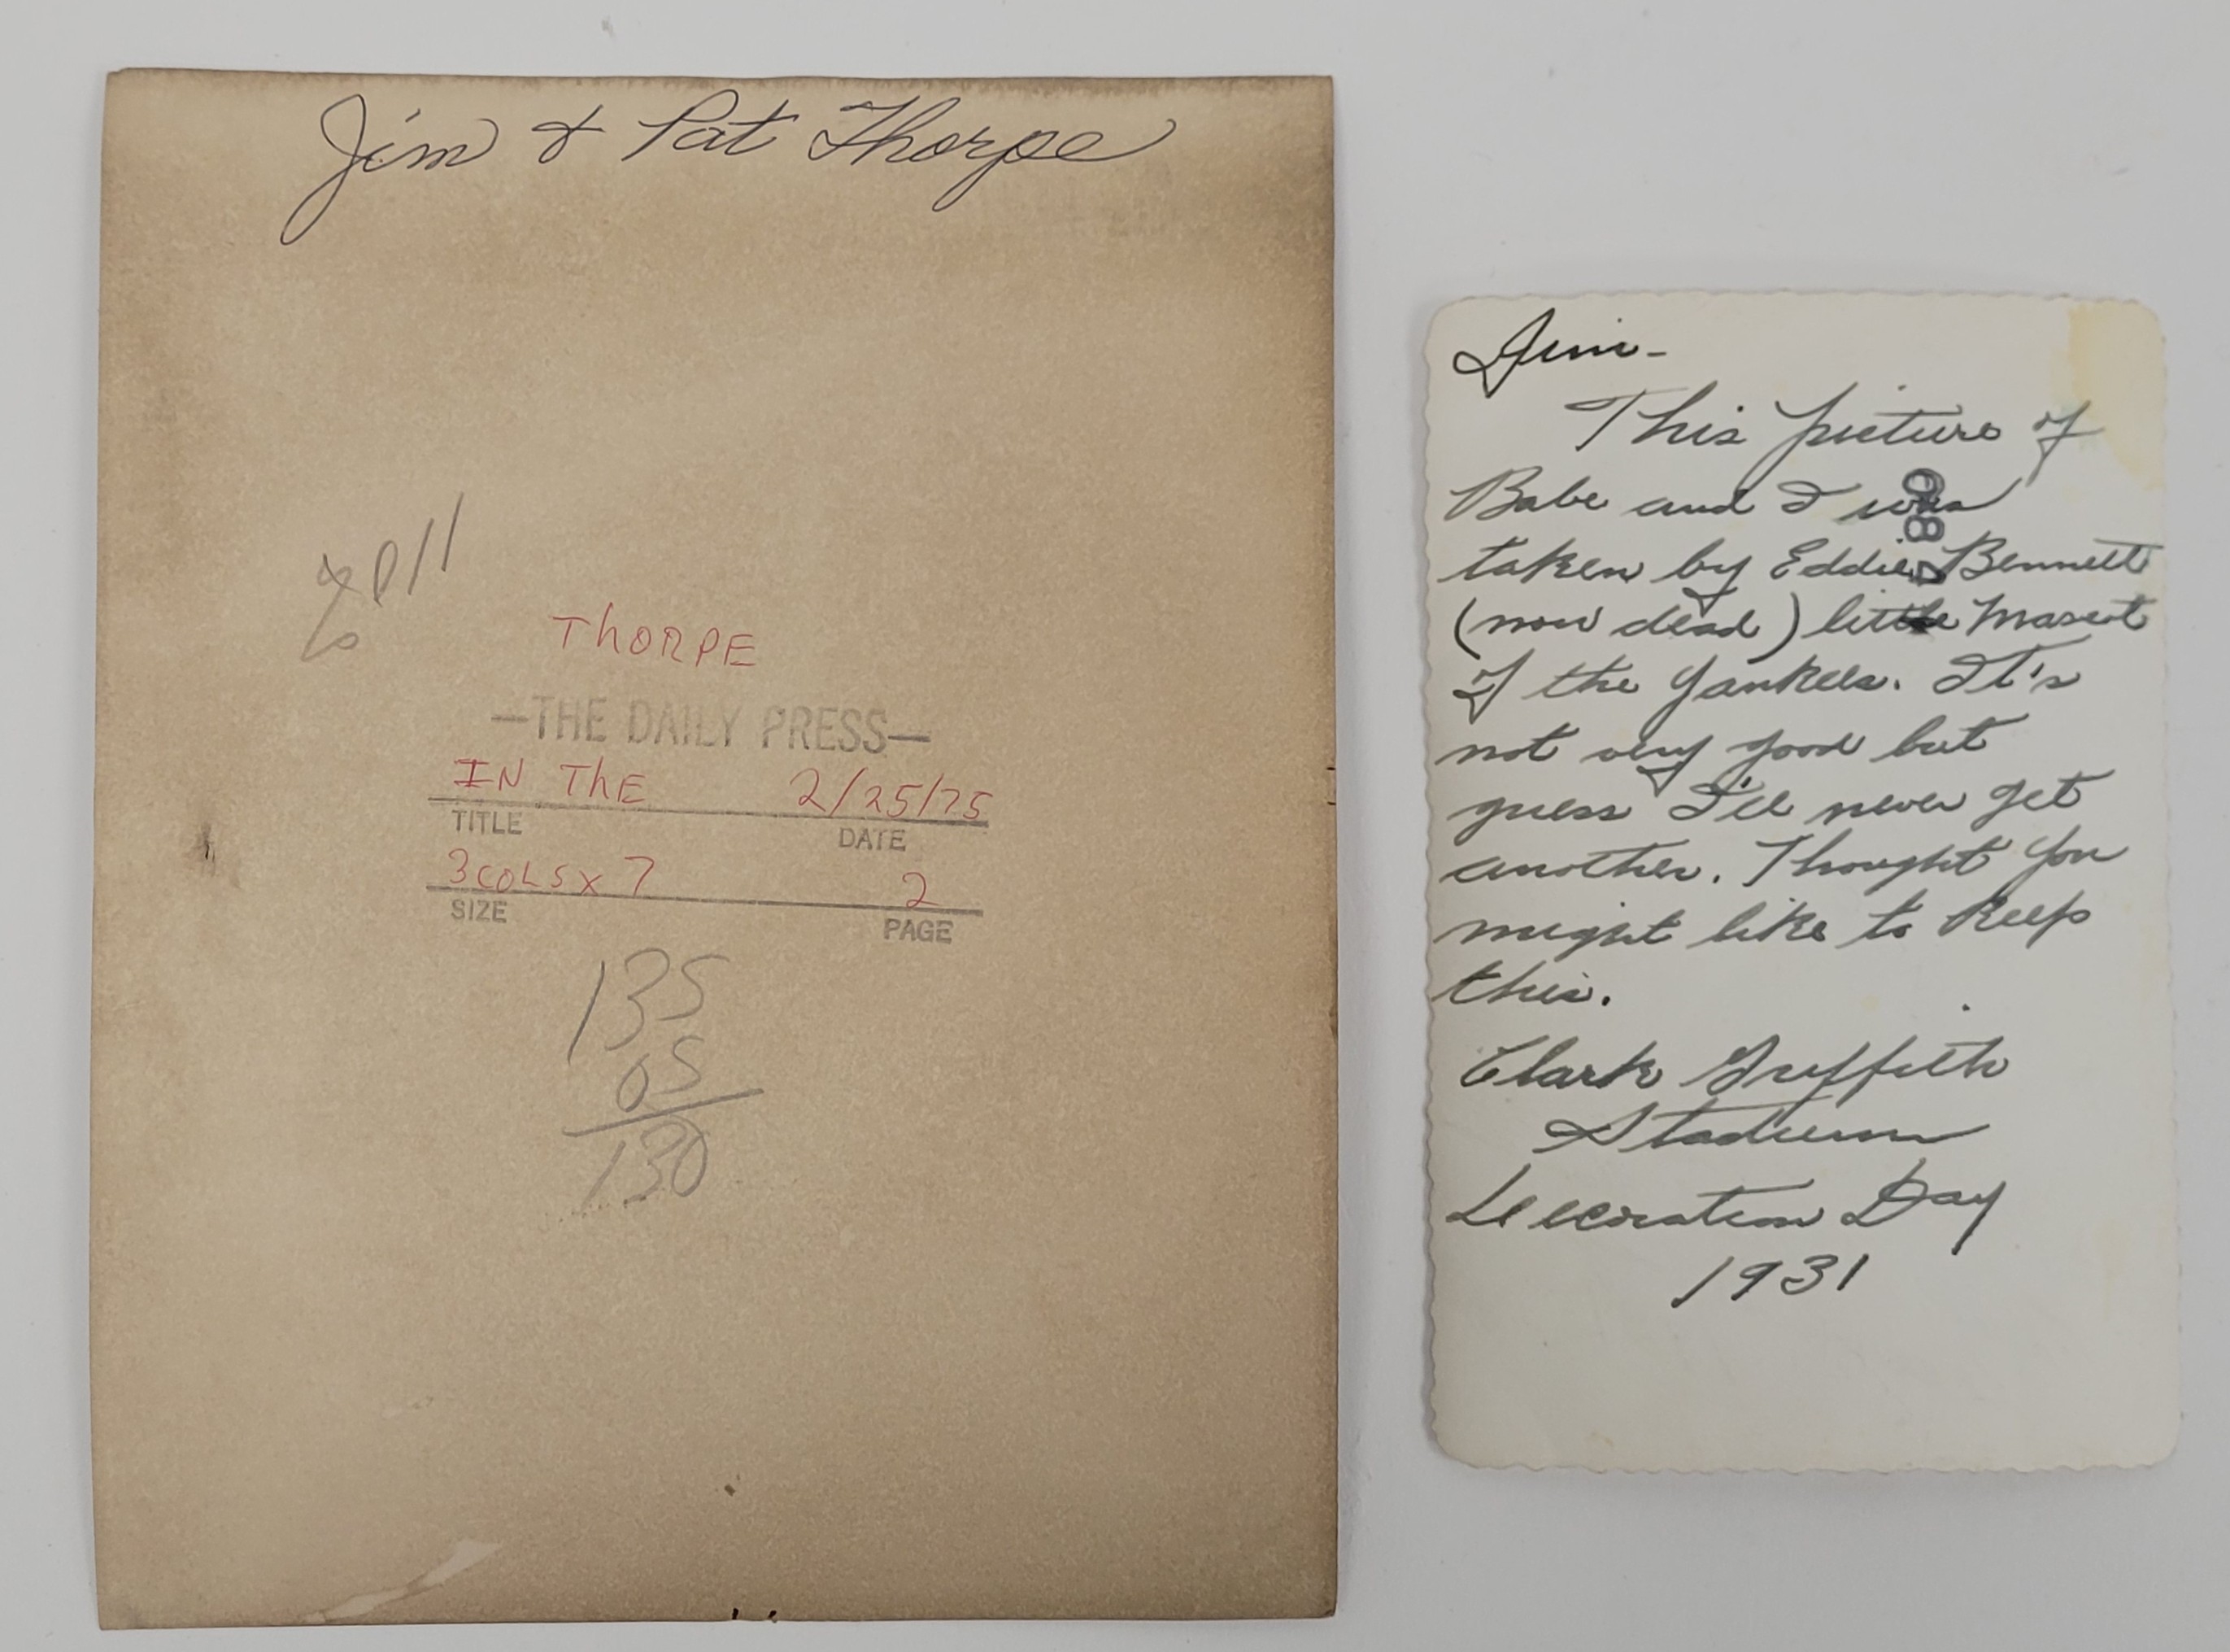 Jim & Pat Thorpe
THORPE
—THE DAILY PRESS—
IN THE 2/25/75
TITLE DATE
3 COLS x 7 2
SIZE PAGE
135
65
130
Jim-
This picture of
Babe and I was
taken by Eddie Bennett
(now dead) little Mascot
of the Yankees. It's
not very good but
guess I'll never get
another. Thought you
might like to keep
this.
Clark Griffith
Stadium
Decoration Day
1931